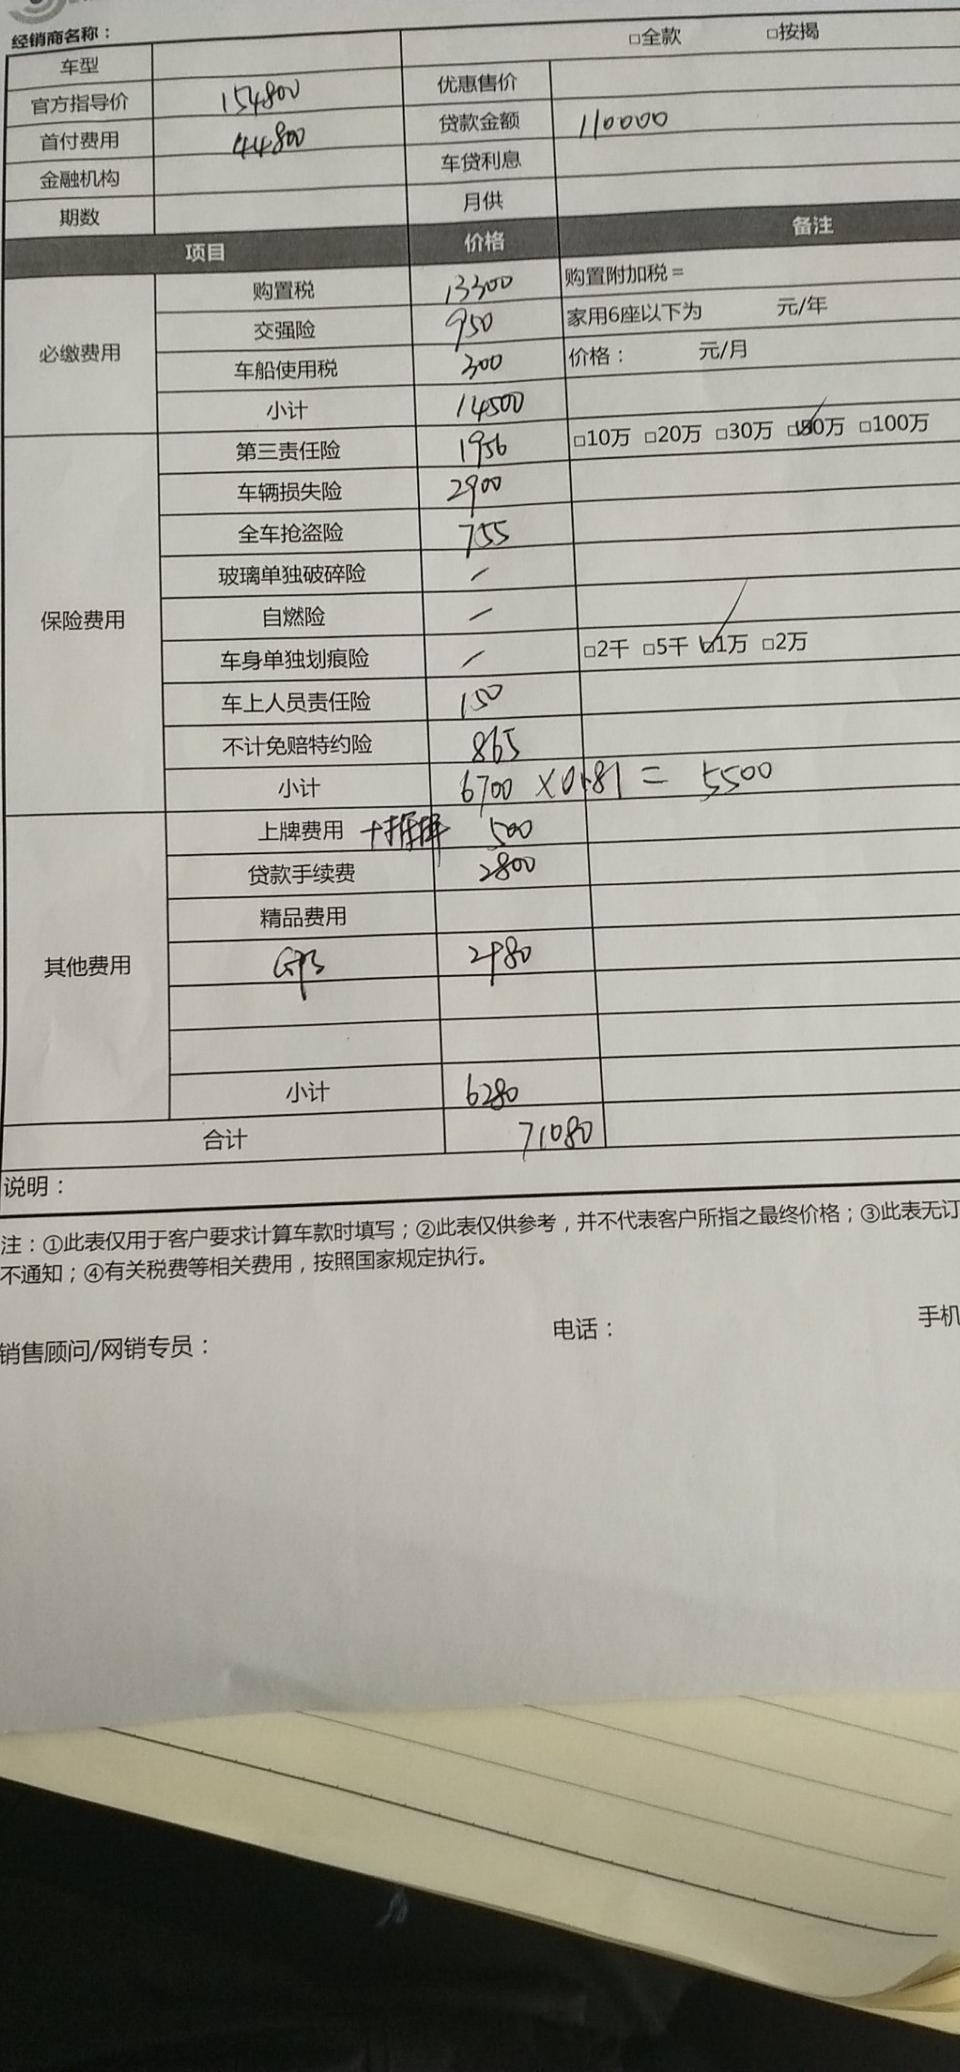 经销商名称：
车型 □全款 □按揭
官方指导价 154800 优惠售价
首付费用 44800 贷款金额 110000
金融机构 车贷利息
期数 月供
项目 价格 备注
必缴费用
购置税 13300 购置附加税 =
交强险 950 家用6座以下为 元/年
车船使用税 300 价格： 元/月
小计 14500
保险费用
第三责任险 1956 □10万 □20万 □30万 □50万 □100万
车辆损失险 2900
全车抢盗险 755
玻璃单独破碎险 /
自燃险 /
车身单独划痕险 / □2千 □5千 □1万 □2万
车上人员责任险 150
不计免赔特约险 865
小计 6700 × 0.81 = 5500
其他费用
上牌费用 500
贷款手续费 2800
精品费用
GPS 2980
小计 6280
合计 71080
说明：
注：①此表仅用于客户要求计算车款时填写；②此表仅供参考，并不代表客户所指之最终价格；③此表无订
不通知；④有关税费等相关费用，按照国家规定执行。
销售顾问/网销专员： 电话： 手机